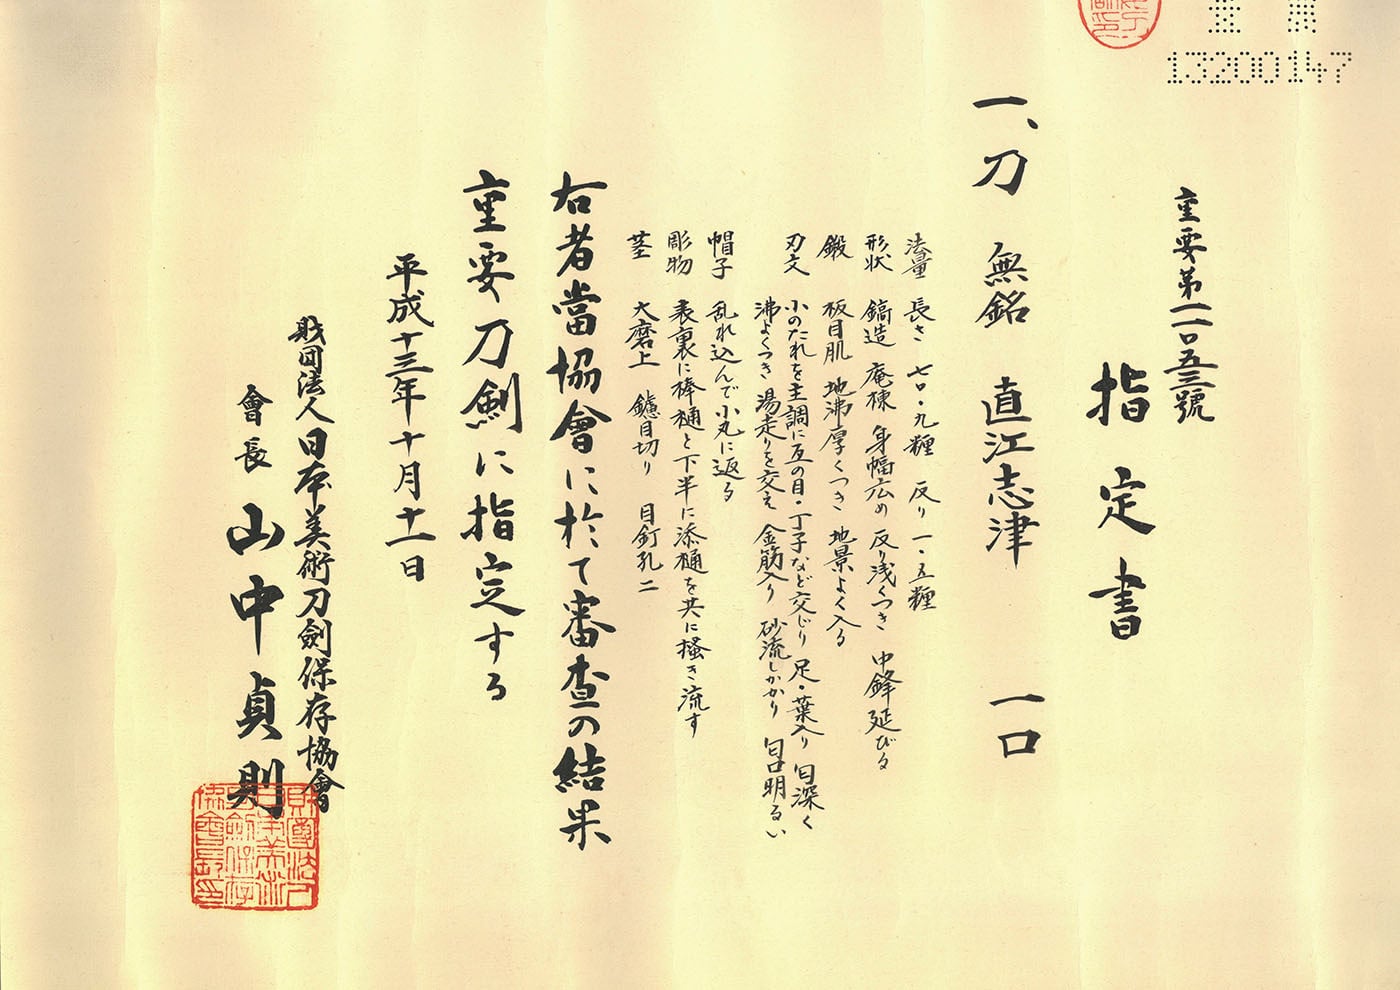 13200147
重要第一一〇五三號
指定書
一、刀 無銘 直江志津 一口
法量 長さ 七〇・九糎 反り 一・五糎
形状 鎬造 庵棟 身幅広め 反り浅くつき 中鋒延びる
鍛 板目肌 地沸厚くつき 地景よく入る
刃文 小のたれを主調に互の目・丁子など交じり 足・葉入り 匂深く
沸よくつき 湯走りを交え 金筋入り 砂流しかかり 匂口明るい
帽子 乱れ込んで小丸に返る
彫物 表裏に棒樋と下半に添樋を共に掻き流す
茎 大磨上 鑢目切り 目釘孔二
右者當協會に於て審査の結果
重要刀剣に指定する
平成十三年十月十一日
財団法人日本美術刀劍保存協會
會長 山中貞則
財團法人
日本美術
刀劍保存
協會長印